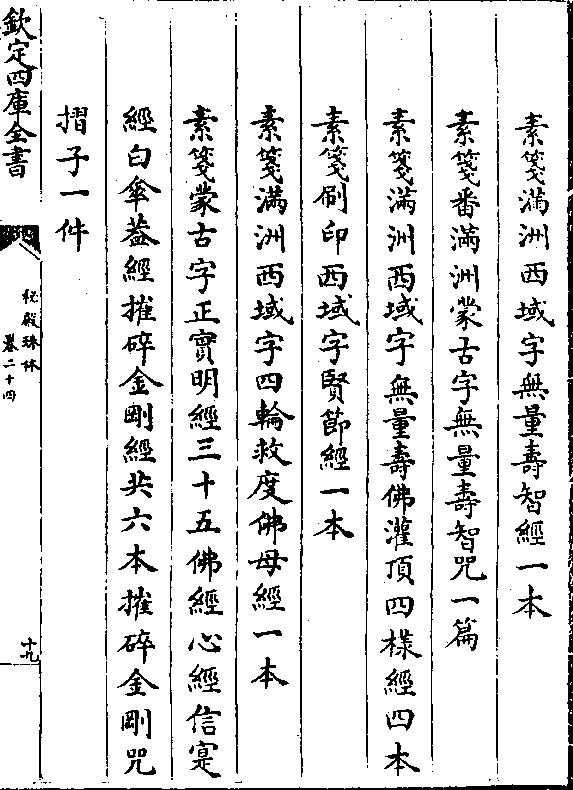 素箋滿洲西域字無量壽智經一本
素箋番滿洲蒙古字無量壽智咒一篇
素箋滿洲西域字無量壽佛灌頂四樣經四本
素箋刷印西域字賢節經一本
素箋滿洲西域字四輪救度佛母經一本
素箋蒙古字正實明經三十五佛經心經信寔
經白傘葢經摧碎金剛經共六本摧碎金剛咒
摺子一件
欽定四庫全書
秘殿珠林
卷二十四
十九